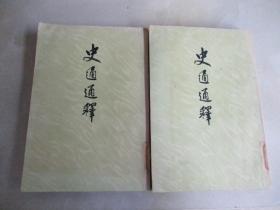 史通通釋
史通通釋